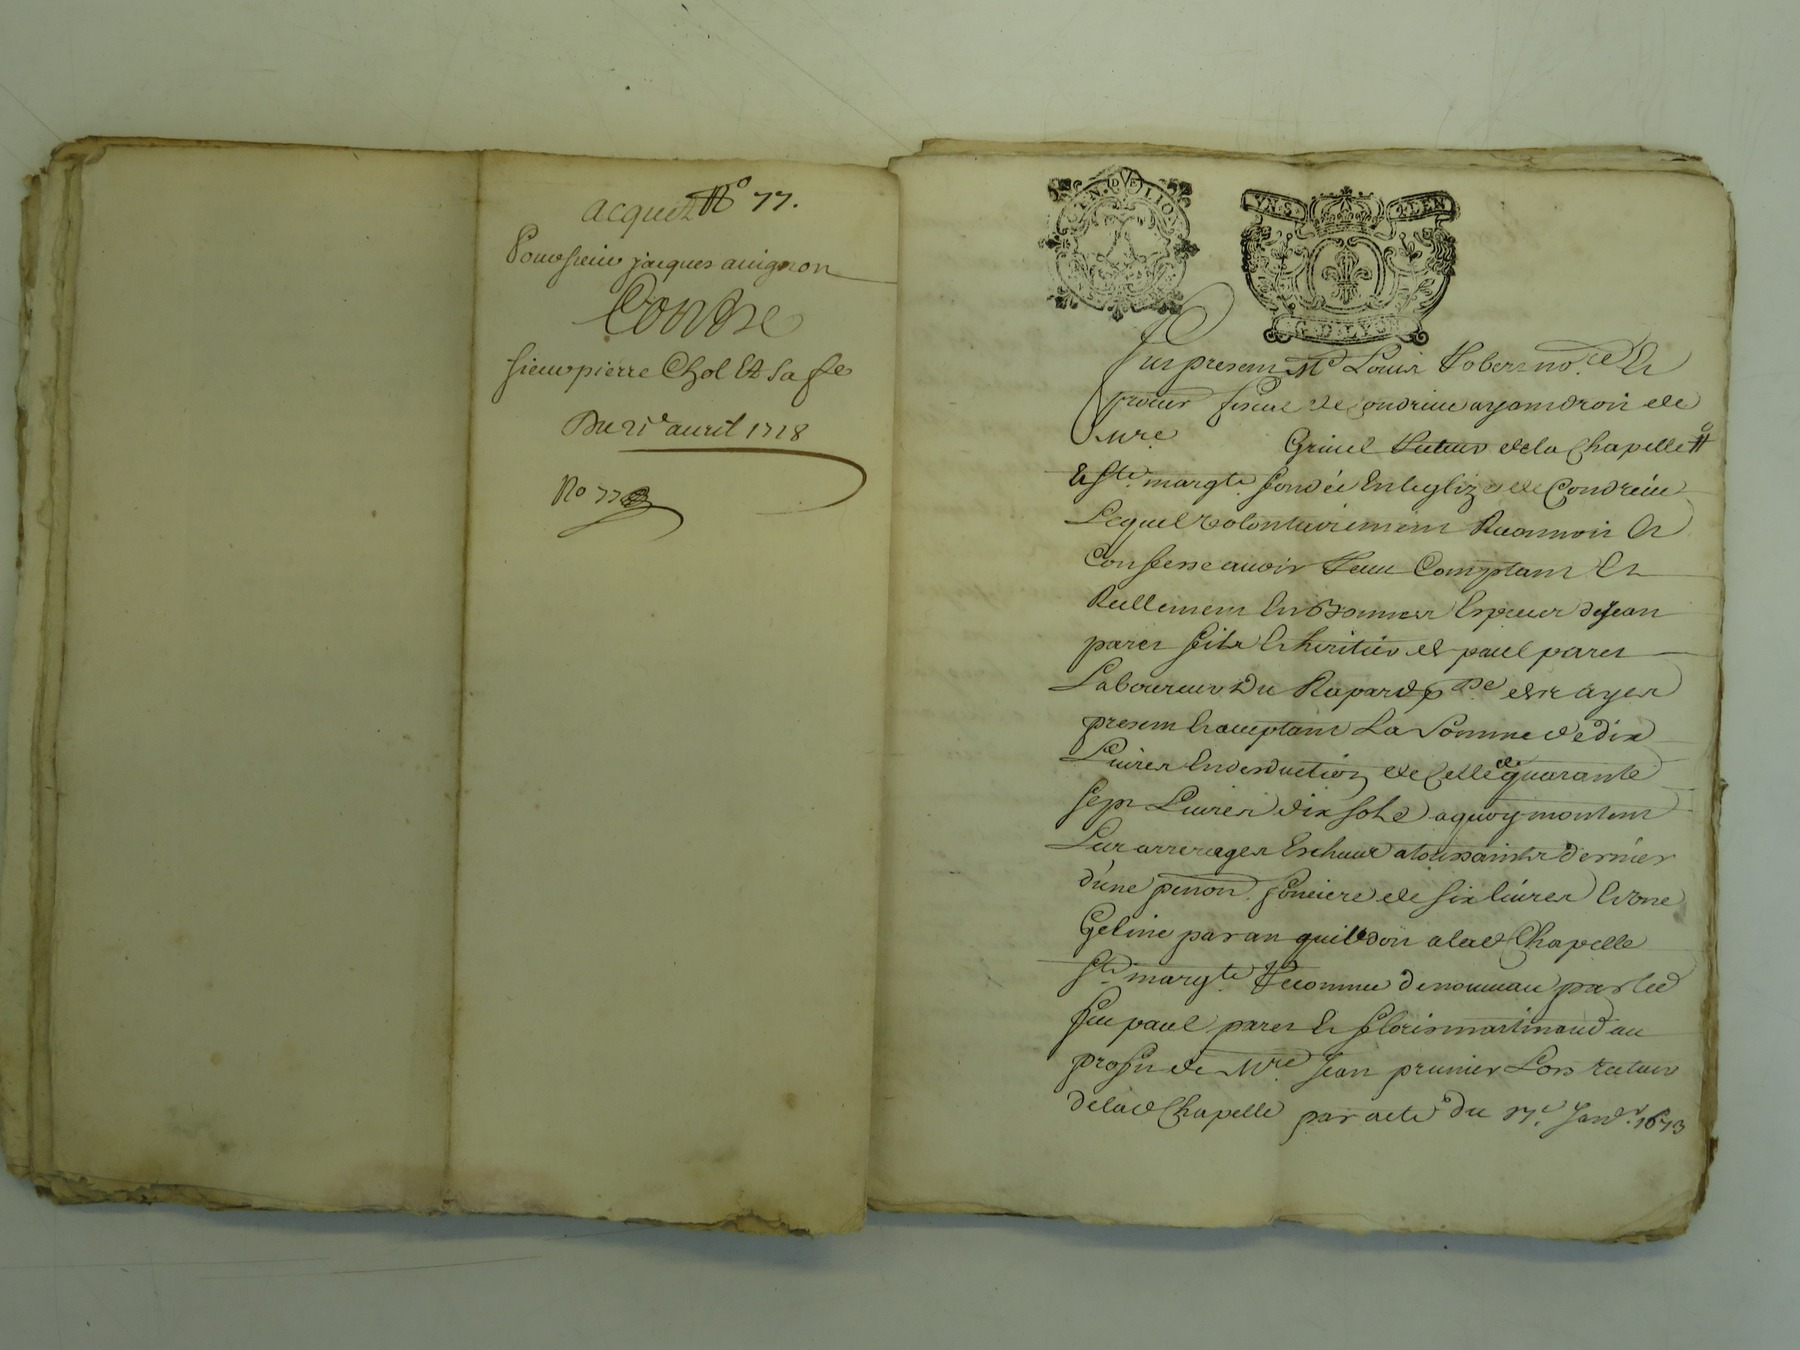 acquit No 77.
Pour sieur jacques avignon
Contre
sieur pierre Chol Et sa fe
Du 21e auril 1718
No 77
GEN. DE LIO
YN. S. TLEN
G. DE LYON
fut present Me Louis Robert nore Et
procur fiscal de Condrieu ayant droit de
Mre Griuel Recteur de la Chapelle #
Ste margte fondée En leglize de Condrieu
Lequel volontairement Reconnoit Et
Confesse auoir Receu Comptant Et
Reellement En Bonnes Espèces de Jean
paret fils Et heritier de paul paret
Laboureur Du Rapard psse
present Et acceptant La Somme de dix
Liures En desduction de Celle de quarante
sept Liures dix sols a quoy montent
Les arrerages Escheue a toussaints dernier
d'une pension fonciere de six liures Et une
Geline par an quil doit a lad Chapelle
Ste margte Reconnue de nouueau par led
feu paul paret Et floris martinaud au
profit de Mre Jean prunier Lors recteur
de lad Chapelle par acte du 17e Janvr 1673